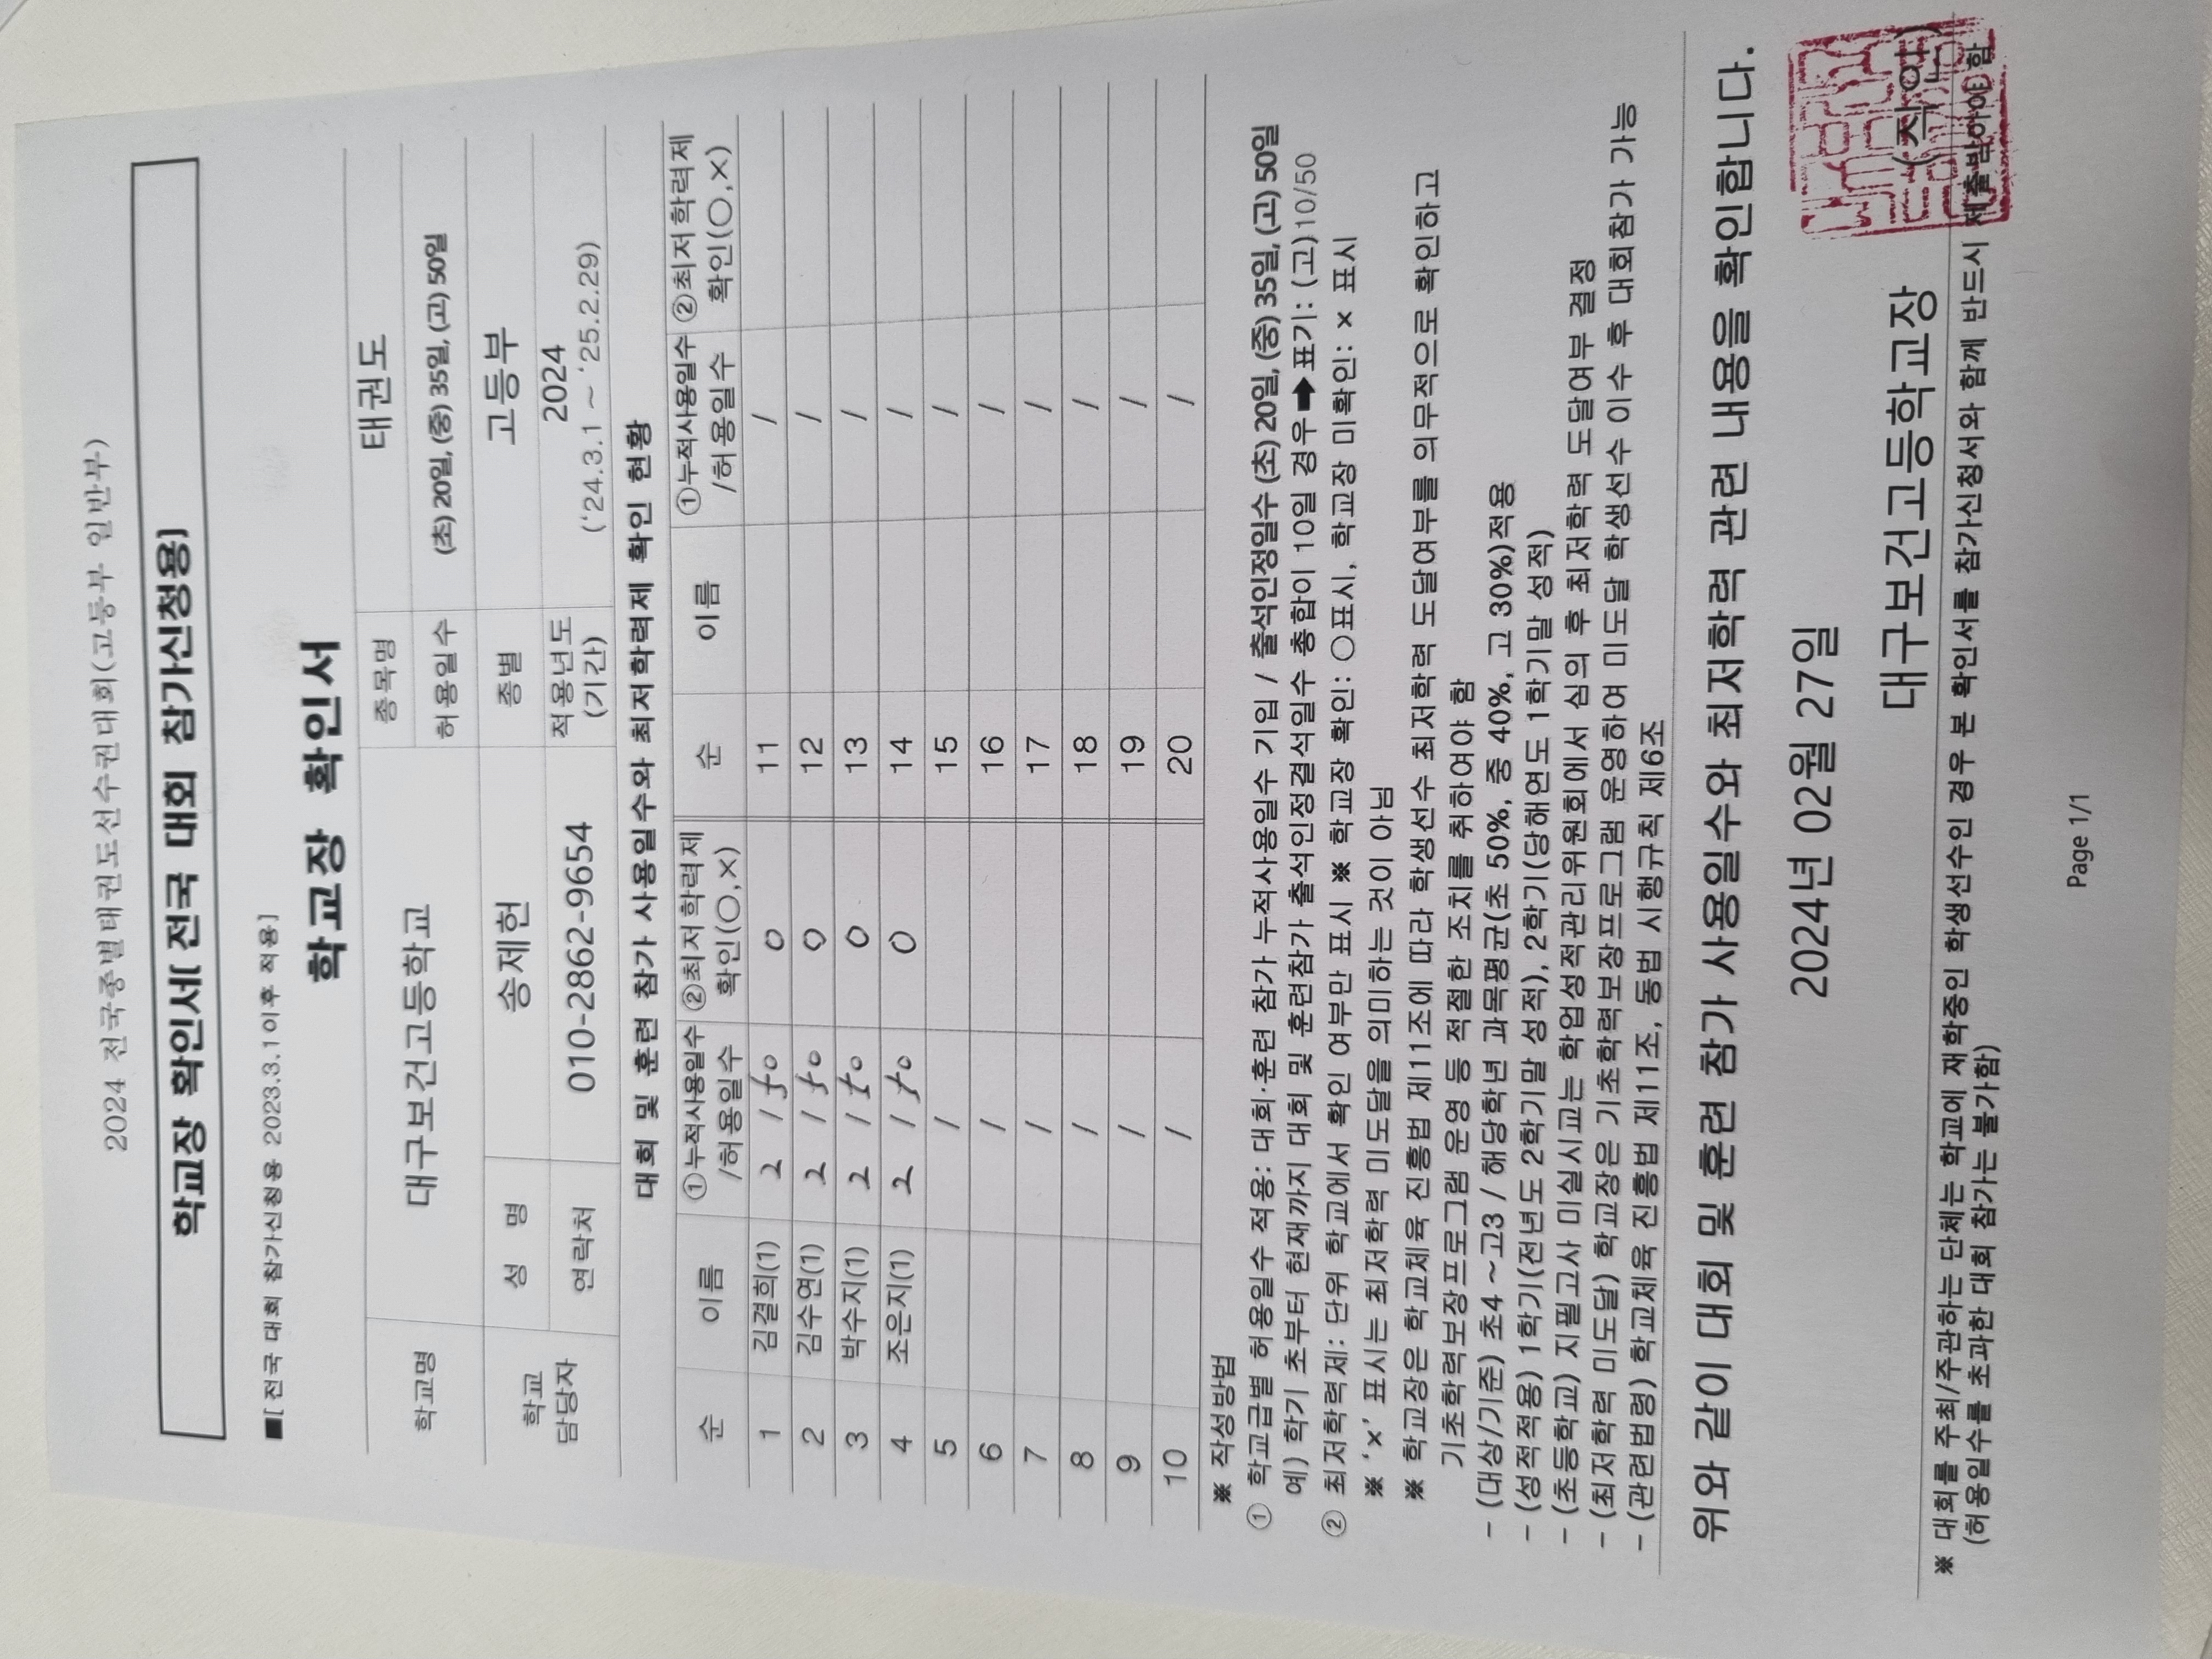 2024 전국종별태권도선수권대회(고등부 일반부)
학교장 확인서[ 전국 대회 참가신청용]
■[ 전국 대회 참가신청용 2023.3.1이후 적용]
학교장 확인서
학교명 대구보건고등학교 종목명 태권도
허용일수 (초) 20일, (중) 35일, (고) 50일
학교 담당자 성 명 송제헌 종별 고등부
연락처 010-2862-9654 적용년도 (기간) 2024 ('24.3.1 ~ '25.2.29)
대회 및 훈련 참가 사용일수와 최저학력제 확인 현황
순 이름 ①누적사용일수 /허용일수 ②최저학력제 확인(○,×) 순 이름 ①누적사용일수 /허용일수 ②최저학력제 확인(○,×)
1 김결희(1) 2 / 50 O 11 /
2 김수연(1) 2 / 50 O 12 /
3 박수지(1) 2 / 50 O 13 /
4 조은지(1) 2 / 50 O 14 /
5 / 15 /
6 / 16 /
7 / 17 /
8 / 18 /
9 / 19 /
10 / 20 /
※ 작성방법
① 학교급별 허용일수 적용: 대회·훈련 참가 누적사용일수 기입 / 출석인정일수 (초) 20일, (중) 35일, (고) 50일
예) 학기 초부터 현재까지 대회 및 훈련참가 출석인정결석일수 총합이 10일 경우 ➡ 표기: (고)10/50
② 최저학력제: 단위 학교에서 확인 여부만 표시 ※ 학교장 확인: ○표시, 학교장 미확인: × 표시
※ '×' 표시는 최저학력 미도달을 의미하는 것이 아님
※ 학교장은 학교체육 진흥법 제11조에 따라 학생선수 최저학력 도달여부를 의무적으로 확인하고
기초학력보장프로그램 운영 등 적절한 조치를 취하여야 함
- (대상/기준) 초4 ~고3 / 해당학년 과목평균(초 50%, 중 40%, 고 30%)적용
- (성적적용) 1학기(전년도 2학기말 성적), 2학기(당해연도 1학기말 성적)
- (초등학교) 지필고사 미실시교는 학업성적관리위원회에서 심의 후 최저학력 도달여부 결정
- (최저학력 미도달) 학교장은 기초학력보장프로그램 운영하여 미도달 학생선수 이수 후 대회참가 가능
- (관련법령) 학교체육 진흥법 제11조, 동법 시행규칙 제6조
위와 같이 대회 및 훈련 참가 사용일수와 최저학력 관련 내용을 확인합니다.
2024년 02월 27일
대구보건고등학교장 (직인)
※ 대회를 주최/주관하는 단체는 학교에 재학중인 학생선수인 경우 본 확인서를 참가신청서와 함께 반드시 제출받아야 함
(허용일수를 초과한 대회 참가는 불가함)
Page 1/1